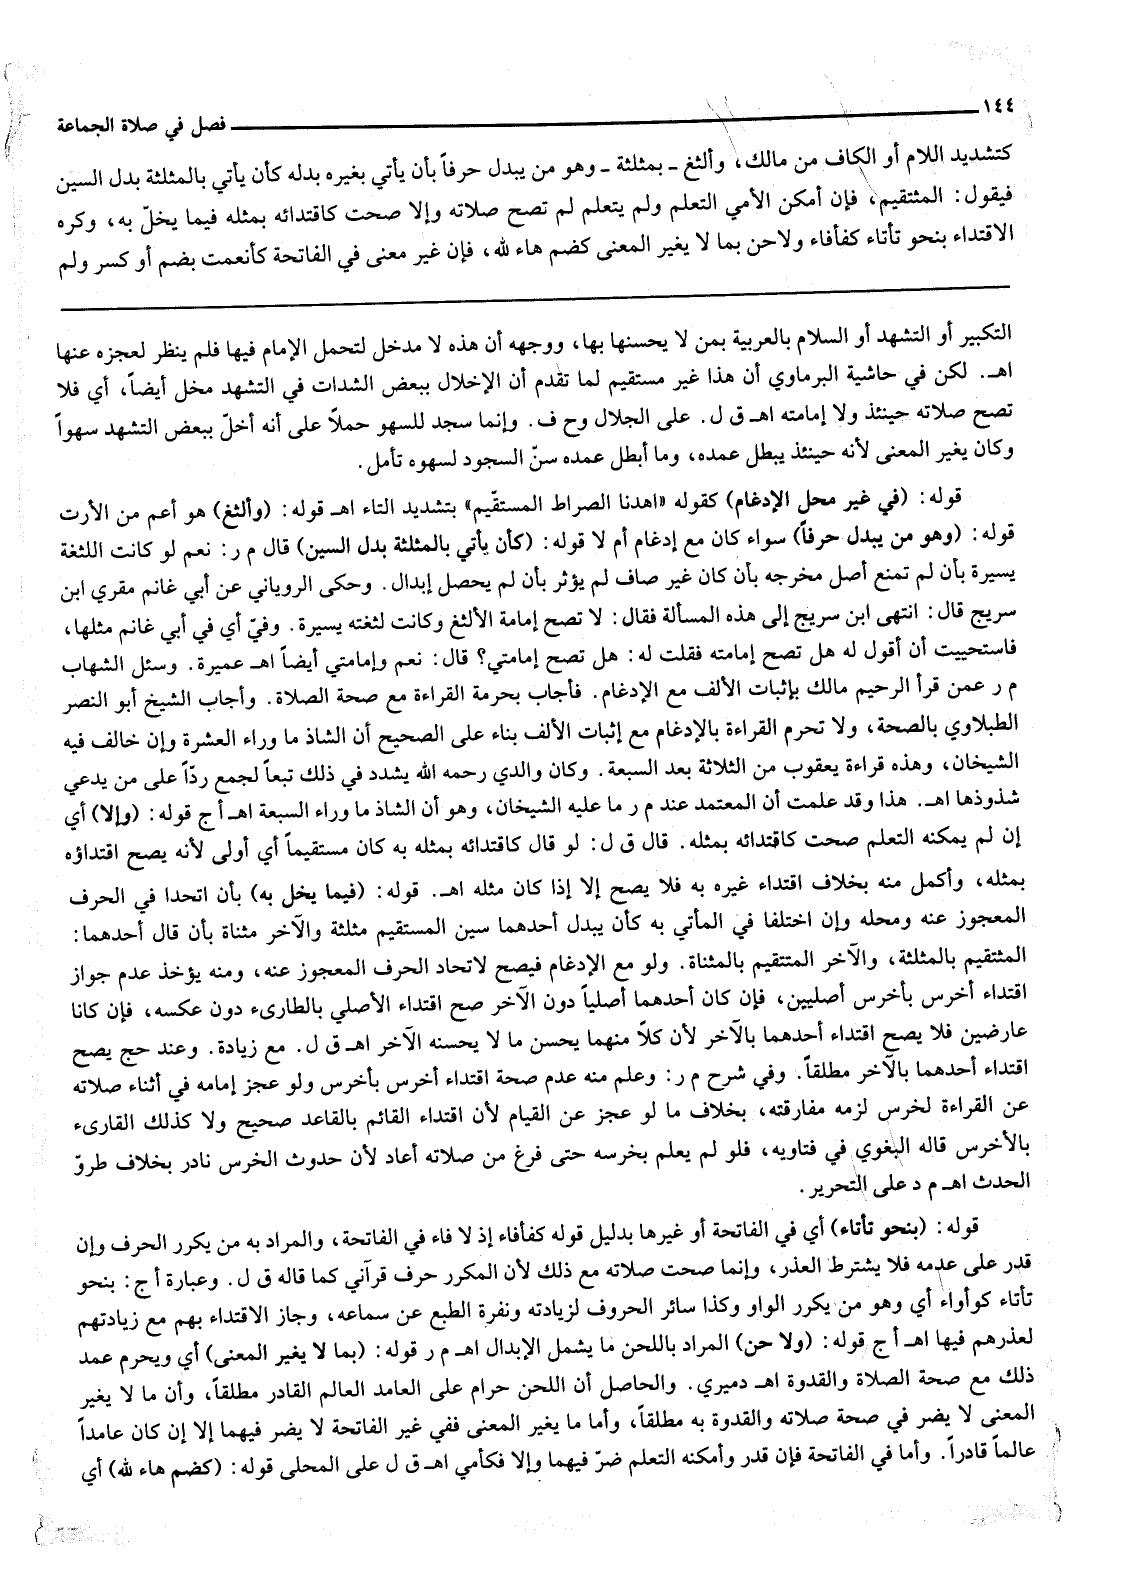 ١٤٤ فصل في صلاة الجماعة
كتشديد اللام أو الكاف من مالك، وألثغ ـ بمثلثة ـ وهو من يبدل حرفاً بأن يأتي بغيره بدله كأن يأتي بالمثلثة بدل السين
فيقول: المثتقيم، فإن أمكن الأمي التعلم ولم يتعلم لم تصح صلاته وإلا صحت كاقتدائه بمثله فيما يخلّ به، وكره
الاقتداء بنحو تأتاء كفأفاء ولاحن بما لا يغير المعنى كضم هاء لله، فإن غير معنى في الفاتحة كأنعمت بضم أو كسر ولم
التكبير أو التشهد أو السلام بالعربية بمن لا يحسنها بها، ووجهه أن هذه لا مدخل لتحمل الإمام فيها فلم ينظر لعجزه عنها
اهـ. لكن في حاشية البرماوي أن هذا غير مستقيم لما تقدم أن الإخلال ببعض الشدات في التشهد مخل أيضاً، أي فلا
تصح صلاته حينئذ ولا إمامته اهـ ق ل. على الجلال وح ف. وإنما سجد للسهو حملاً على أنه أخلّ ببعض التشهد سهواً
وكان يغير المعنى لأنه حينئذ يبطل عمده، وما أبطل عمده سنّ السجود لسهوه تأمل.
قوله: (في غير محل الإدغام) كقوله «اهدنا الصراط المستقّيم» بتشديد التاء اهـ قوله: (وألثغ) هو أعم من الأرت
قوله: (وهو من يبدل حرفاً) سواء كان مع إدغام أم لا قوله: (كأن يأتي بالمثلثة بدل السين) قال م ر: نعم لو كانت اللثغة
يسيرة بأن لم تمنع أصل مخرجه بأن كان غير صاف لم يؤثر بأن لم يحصل إبدال. وحكى الروياني عن أبي غانم مقري ابن
سريج قال: انتهى ابن سريج إلى هذه المسألة فقال: لا تصح إمامة الألثغ وكانت لثغته يسيرة. وفيّ أي في أبي غانم مثلها،
فاستحييت أن أقول له هل تصح إمامته فقلت له: هل تصح إمامتي؟ قال: نعم وإمامتي أيضاً اهـ عميرة. وسئل الشهاب
م ر عمن قرأ الرحيم مالك بإثبات الألف مع الإدغام. فأجاب بحرمة القراءة مع صحة الصلاة. وأجاب الشيخ أبو النصر
الطبلاوي بالصحة، ولا تحرم القراءة بالإدغام مع إثبات الألف بناء على الصحيح أن الشاذ ما وراء العشرة وإن خالف فيه
الشيخان، وهذه قراءة يعقوب من الثلاثة بعد السبعة. وكان والدي رحمه الله يشدد في ذلك تبعاً لجمع ردّاً على من يدعي
شذوذها اهـ. هذا وقد علمت أن المعتمد عند م ر ما عليه الشيخان، وهو أن الشاذ ما وراء السبعة اهـ أ ج قوله: (وإلا) أي
إن لم يمكنه التعلم صحت كاقتدائه بمثله. قال ق ل: لو قال كاقتدائه بمثله به كان مستقيماً أي أولى لأنه يصح اقتداؤه
بمثله، وأكمل منه بخلاف اقتداء غيره به فلا يصح إلا إذا كان مثله اهـ. قوله: (فيما يخل به) بأن اتحدا في الحرف
المعجوز عنه ومحله وإن اختلفا في المأتي به كأن يبدل أحدهما سين المستقيم مثلثة والآخر مثناة بأن قال أحدهما:
المثتقيم بالمثلثة، والآخر المتتقيم بالمثناة. ولو مع الإدغام فيصح لاتحاد الحرف المعجوز عنه، ومنه يؤخذ عدم جواز
اقتداء أخرس بأخرس أصليين، فإن كان أحدهما أصلياً دون الآخر صح اقتداء الأصلي بالطارىء دون عكسه، فإن كانا
عارضين فلا يصح اقتداء أحدهما بالآخر لأن كلاً منهما يحسن ما لا يحسنه الآخر اهـ ق ل. مع زيادة. وعند حج يصح
اقتداء أحدهما بالآخر مطلقاً. وفي شرح م ر: وعلم منه عدم صحة اقتداء أخرس بأخرس ولو عجز إمامه في أثناء صلاته
عن القراءة لخرس لزمه مفارقته، بخلاف ما لو عجز عن القيام لأن اقتداء القائم بالقاعد صحيح ولا كذلك القارىء
بالأخرس قاله البغوي في فتاويه، فلو لم يعلم بخرسه حتى فرغ من صلاته أعاد لأن حدوث الخرس نادر بخلاف طروّ
الحدث اهـ م د على التحرير.
قوله: (بنحو تأتاء) أي في الفاتحة أو غيرها بدليل قوله كفأفاء إذ لا فاء في الفاتحة، والمراد به من يكرر الحرف وإن
قدر على عدمه فلا يشترط العذر، وإنما صحت صلاته مع ذلك لأن المكرر حرف قرآني كما قاله ق ل. وعبارة أ ج: بنحو
تأتاء كوأواء أي وهو من يكرر الواو وكذا سائر الحروف لزيادته ونفرة الطبع عن سماعه، وجاز الاقتداء بهم مع زيادتهم
لعذرهم فيها اهـ أ ج قوله: (ولا حن) المراد باللحن ما يشمل الإبدال اهـ م ر قوله: (بما لا يغير المعنى) أي ويحرم عمد
ذلك مع صحة الصلاة والقدوة اهـ دميري. والحاصل أن اللحن حرام على العامد العالم القادر مطلقاً، وأن ما لا يغير
المعنى لا يضر في صحة صلاته والقدوة به مطلقاً، وأما ما يغير المعنى ففي غير الفاتحة لا يضر فيهما إلا إن كان عامداً
عالماً قادراً. وأما في الفاتحة فإن قدر وأمكنه التعلم ضرّ فيهما وإلا فكأمي اهـ ق ل على المحلى قوله: (كضم هاء لله) أي